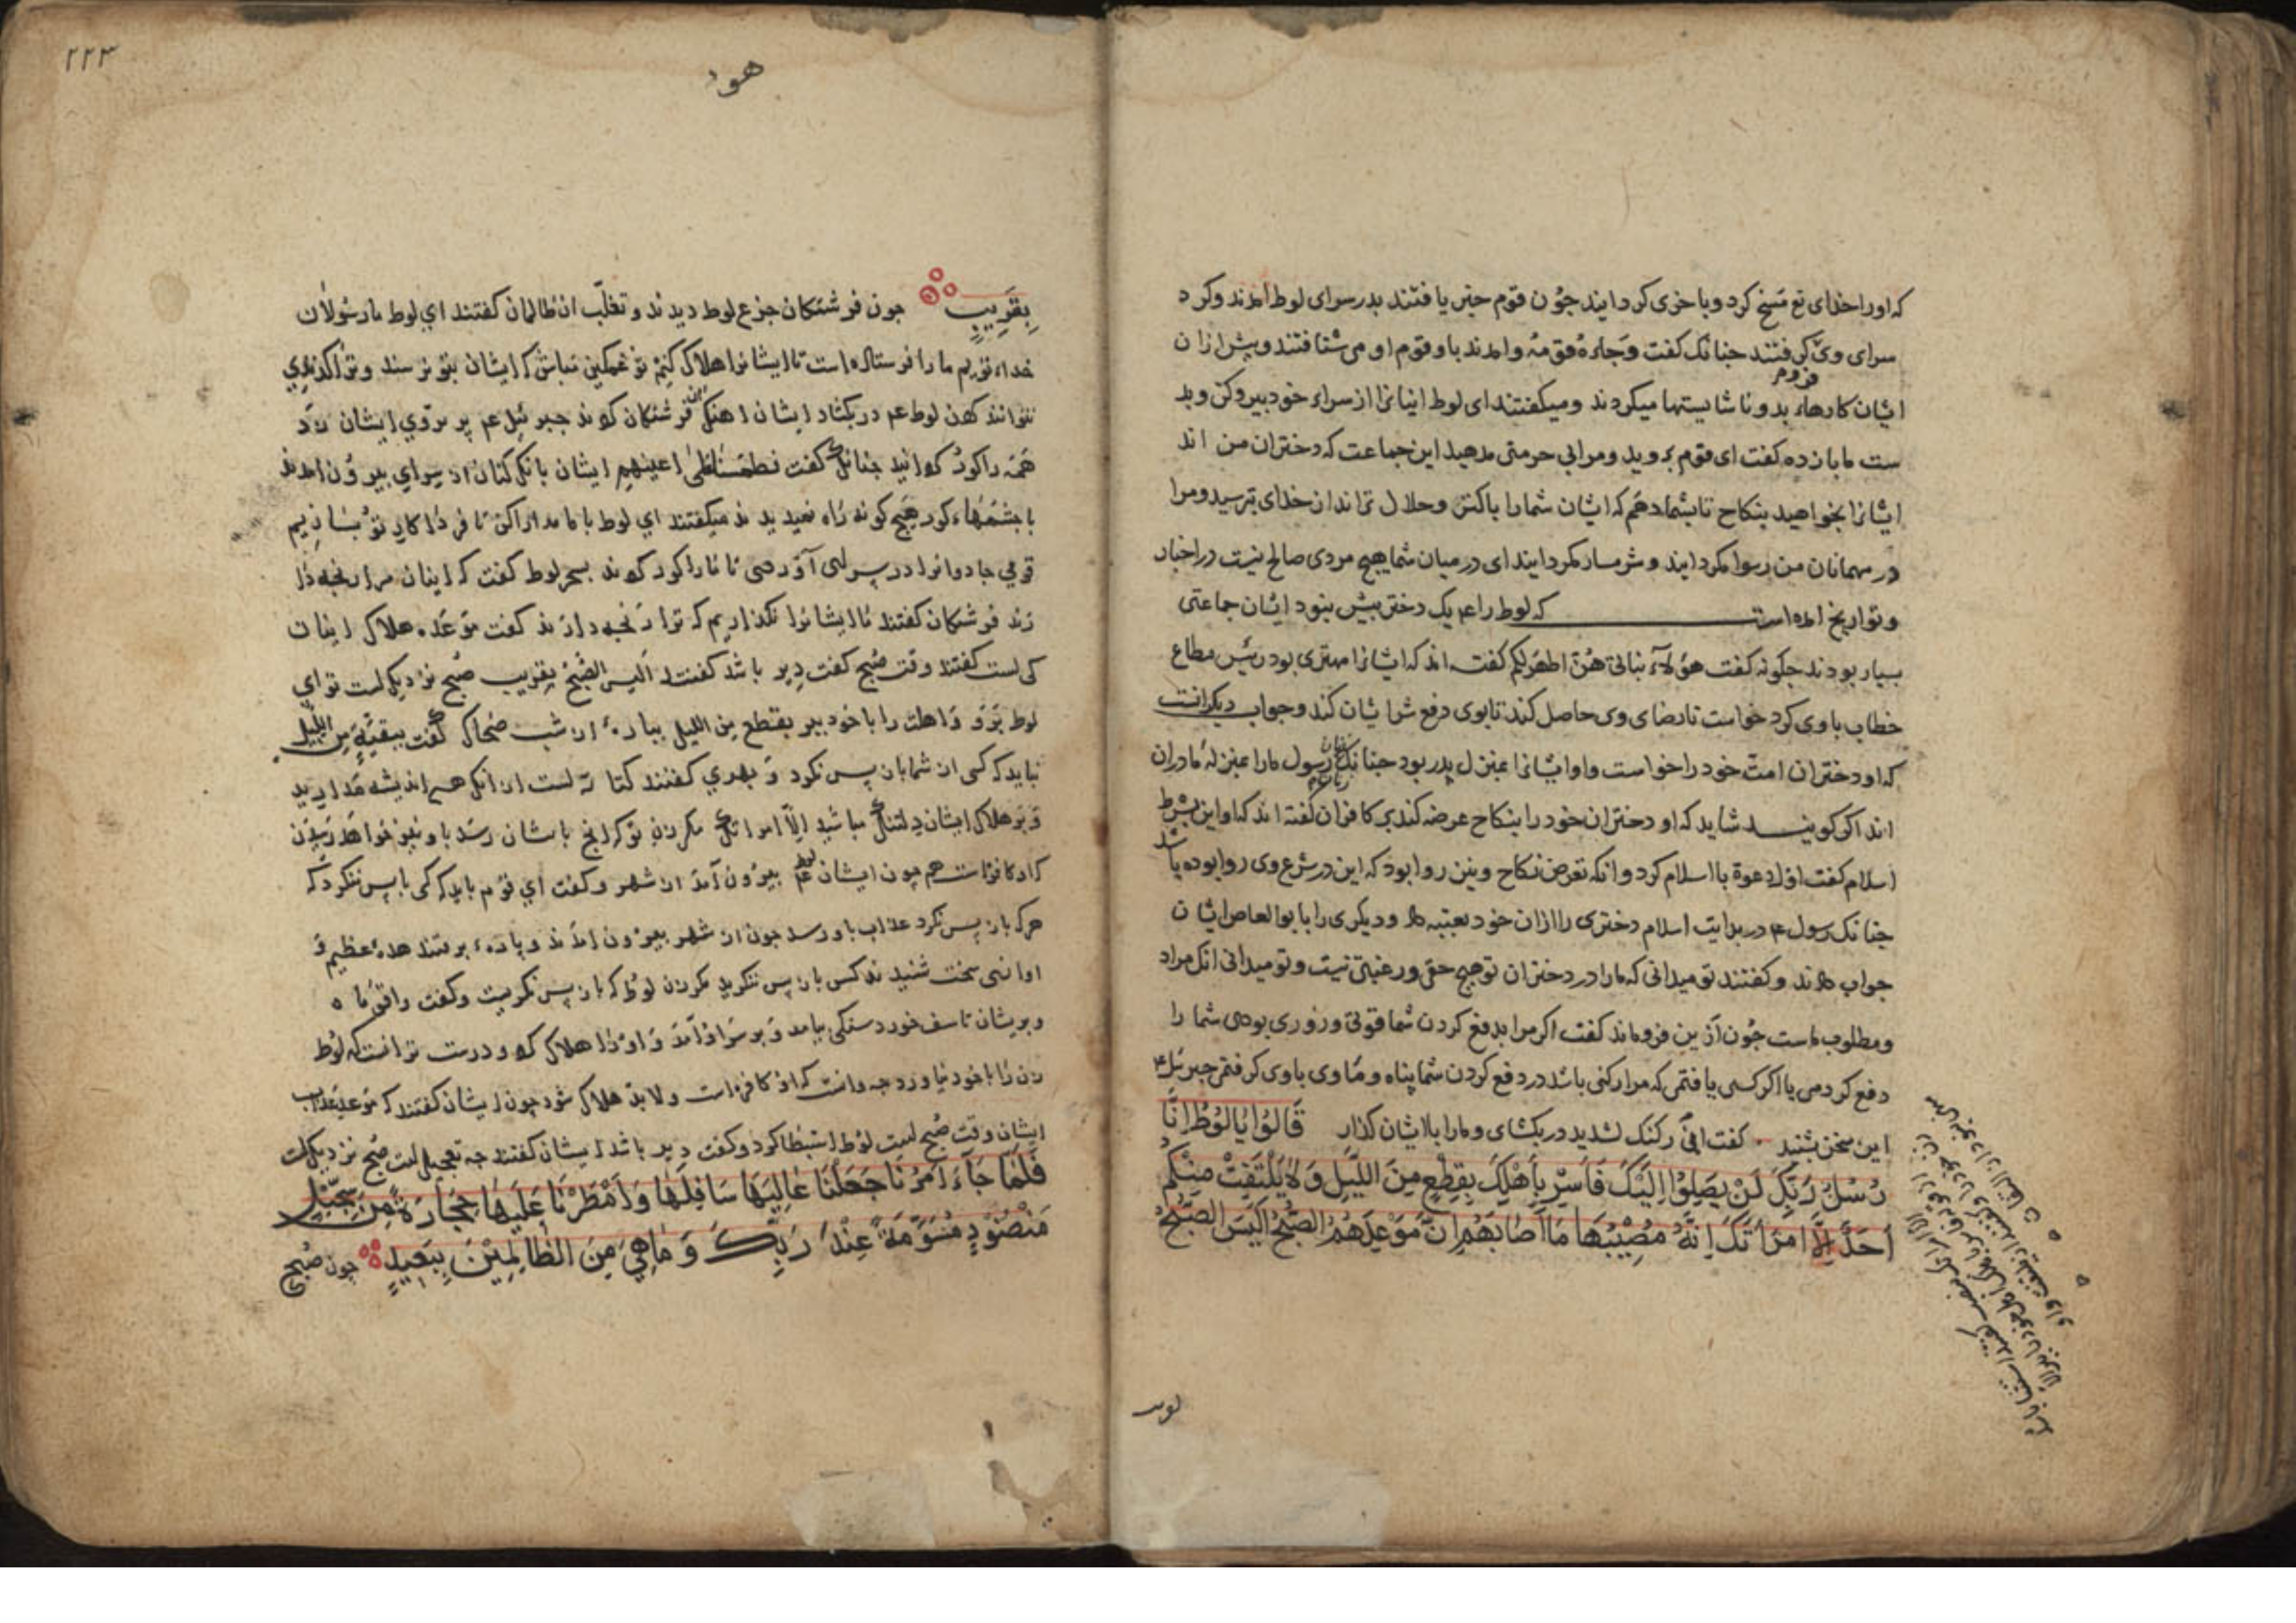 که او را خدای تع مسخ کرد و با خزی کردانید جون قوم خبر یافتند بدر سرای لوط امدند و کرد
سرای وی کرفتند جنانک کفت وجاءه قومه وامدند باو قوم او می شتافتند و پیش ازان
ایشان کارهاء بد و ناشایستها میکردند و میکفتند ای لوط اینانرا از سراء خود بیرون کن و بد
ست ما باز ده کفت ای قوم بروید و مرا بی حرمتی مدهید این جماعت که دختران من اند
ایشانرا بخواهید بنکاح تا بشما دهم که ایشان شما را پاکتر و حلال تراند از خدای بترسید و مرا
در مهمانان من رسوا مکردانید و شرمسار مکردانید ای در میان شما هیج مردی صالح نیست در اخبار
و تواریخ امده است که لوط را عم یک دختر بیش نبود ایشان جماعتی
بسیار بودند جکونه کفت هؤلاء بناتی هن اطهر لکم کفته اند که ایشانرا مهتری بود رئیس مطاع
خطاب با وی کرد خواست تا رضای وی حاصل کند تا بوی دفع شر ایشان کند و جواب دیکر انست
که او دختران امت خود را خواست و او ایشانرا بمنزل پدر بود جنانک زنان رسول ما را بمنزله مادران
اند اکر کویند شاید که او دختران خود را بنکاح عرضه کند بر کافران کفته اند که او این بشرط
اسلام کفت اول دعوة با اسلام کرد وانکه تعرض نکاح و نیز روا بود که این در شرع وی روا بوده باشد
جنانک رسول ع در بدایت اسلام دختری را ازان خود بعتبه داد و دیکری را بابو العاص ایشان
جواب دادند و کفتند تو میدانی که ما را در دختران تو هیج حقی و رغبتی نیست و تو میدانی انک مراد
و مطلوب ماست جون ازین فرو ماند کفت اکر مرا بدفع کردن شما قوتی و زوری بودی شما را
دفع کردمی یا اکر کسی یافتمی که مرا رکنی باشد در دفع کردن شما پناه و ماوی باوی کرفتمی جبرئیل ع
این سخن بشنید کفت ان رکنک لشدید در بکشای و ما را با ایشان کذار قَالُوا يَا لُوطُ اِنَّا
رُسُلُ رَبِّكَ لَنْ يَصِلُوا اِلَيْكَ فَاَسْرِ بِاَهْلِكَ بِقِطْعٍ مِنَ اللَّيْلِ وَلَا يَلْتَفِتْ مِنْكُمْ
اَحَدٌ اِلَّا امْرَاَتَكَ اِنَّهُ مُصِيْبُهَا مَا اَصَابَهُمْ اِنَّ مَوْعِدَهُمُ الصُّبْحُ اَلَيْسَ الصُّبْحُ
۲۲۳
هود
بِقَرِيبٍ جون فرشتکان جزع لوط دیدند و تغلب ان ظالمان کفتند ای لوط ما رسولان
خداء توییم ما را فرستاده است تا ایشانرا هلاک کنیم تو غمکین مباش که ایشان بتو نرسند و ترا کزندی
نتوانند کردن لوط عم در بکشاد ایشان اهنک فرشتکان کردند جبرئیل عم پر بر روی ایشان زد
همه را کور کردانید جنانک کفت فطمسنا علی اعینهم ایشان بانک کنان از سرای بیرون امدند
با جشمهاء کور هیج کونه راه نمیدیدند میکفتند ای لوط با ما مدارا کن تا فردا کار تو بسازیم
قومی جادوانرا در سرای آوردی تا ما را کور کردند بسحر لوط کفت که اینان مرا رنجه دا
رند فرشتکان کفتند ما ایشانرا نکذاریم که ترا رنجه دارند کفت موعد هلاک اینان
کی است کفتند وقت صبح کفت دیر باشد کفتند الیس الصبح بقریب صبح نزدیک است تو ای
لوط برو و اهلت را با خود ببر بقطع من اللیل بپاره از شب ضحاک کفت ببقیة من اللیل
نباید که کسی از شما باز پس نکرد و بهری کفتند
و بر هلاک ایشان دلتنک مباشید الا امراتک مکر زن تو که انج بایشان رسد باو نیز خواهد رسیدن
که او کافرست همجون ایشان لوط عم بیرون آمد از شهر و کفت ای قوم باید که کسی باز پس ننکرد که
هر که باز پس نکرد عذاب باو رسد جون از شهر بیرون امدند و پاره برفتند هده عظیم و
اوازی سخت شنیدند کس باز پس ننکرید مکر زن لوط که باز پس نکریست و کفت واقوماه
و بریشان تاسف خورد سنکی بیامد و بر سر او آمد و او را هلاک کرد و درست تر انست که لوط
زن را با خود نیاورد جه دانست که او کافره است و لابد هلاک شود جون ایشان کفتند که موعد عذاب
ایشان وقت صبح است لوط استبطا کرد و کفت دیر باشد ایشان کفتند جه تعجیل است صبح نزدیک است
فَلَمَّا جَاءَ اَمْرُنَا جَعَلْنَا عَالِيَهَا سَافِلَهَا وَاَمْطَرْنَا عَلَيْهَا حِجَارَةً مِنْ سِجِّيْلٍ
مَنْضُوْدٍ مُسَوَّمَةً عِنْدَ رَبِّكَ وَمَا هِيَ مِنَ الظَّالِمِيْنَ بِبَعِيدٍ جون صبح